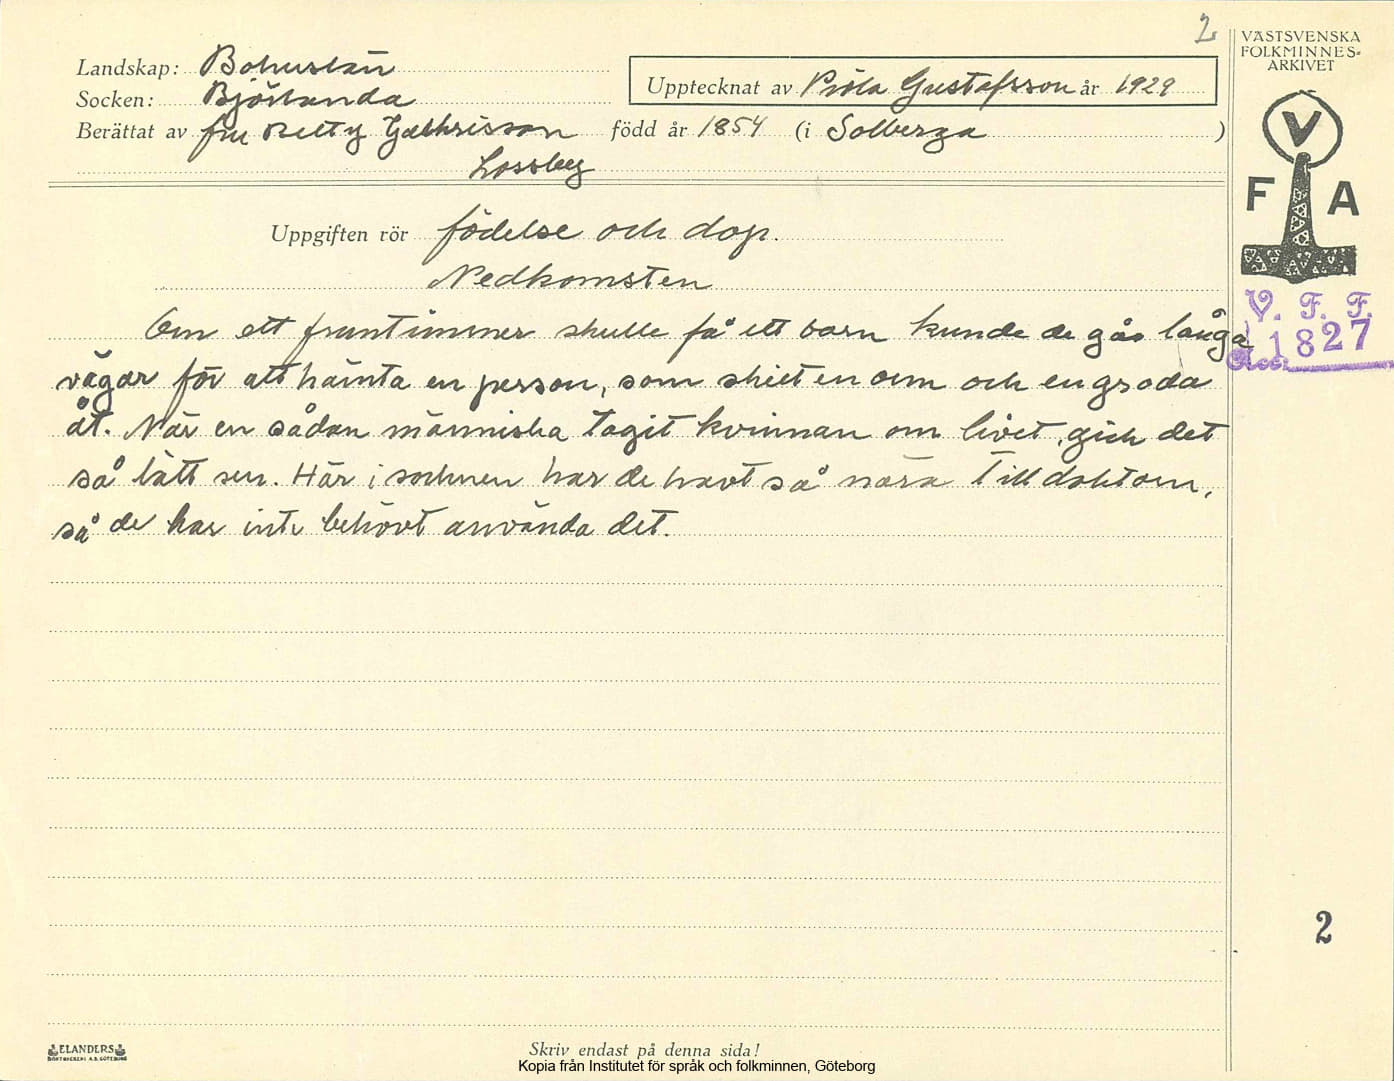 2
VÄSTSVENSKA
FOLKMINNES=
ARKIVET
V
F A
V. F. F.
Acc. 1827
Landskap: Bohuslän
Socken: Björlanda
Upptecknat av Gustafsson år 1929
Berättat av fru Betty född år 1854 (i Solberga )
Lossby
Uppgiften rör födelse och dop.
Nedkomsten
Om ett fruntimmer skulle få ett barn kunde de gås långa
vägar för att hämta en person, som skiet en orm och en groda
åt. När en sådan människa tagit kvinnan om livet, gick det
så lätt sen. Här i socknen har de havt så nära till doktorn,
så de har inte behövt använda det.
2
ELANDERS
BOKTRYCKERI A.B. GÖTEBORG
Skriv endast på denna sida!
Kopia från Institutet för språk och folkminnen, Göteborg